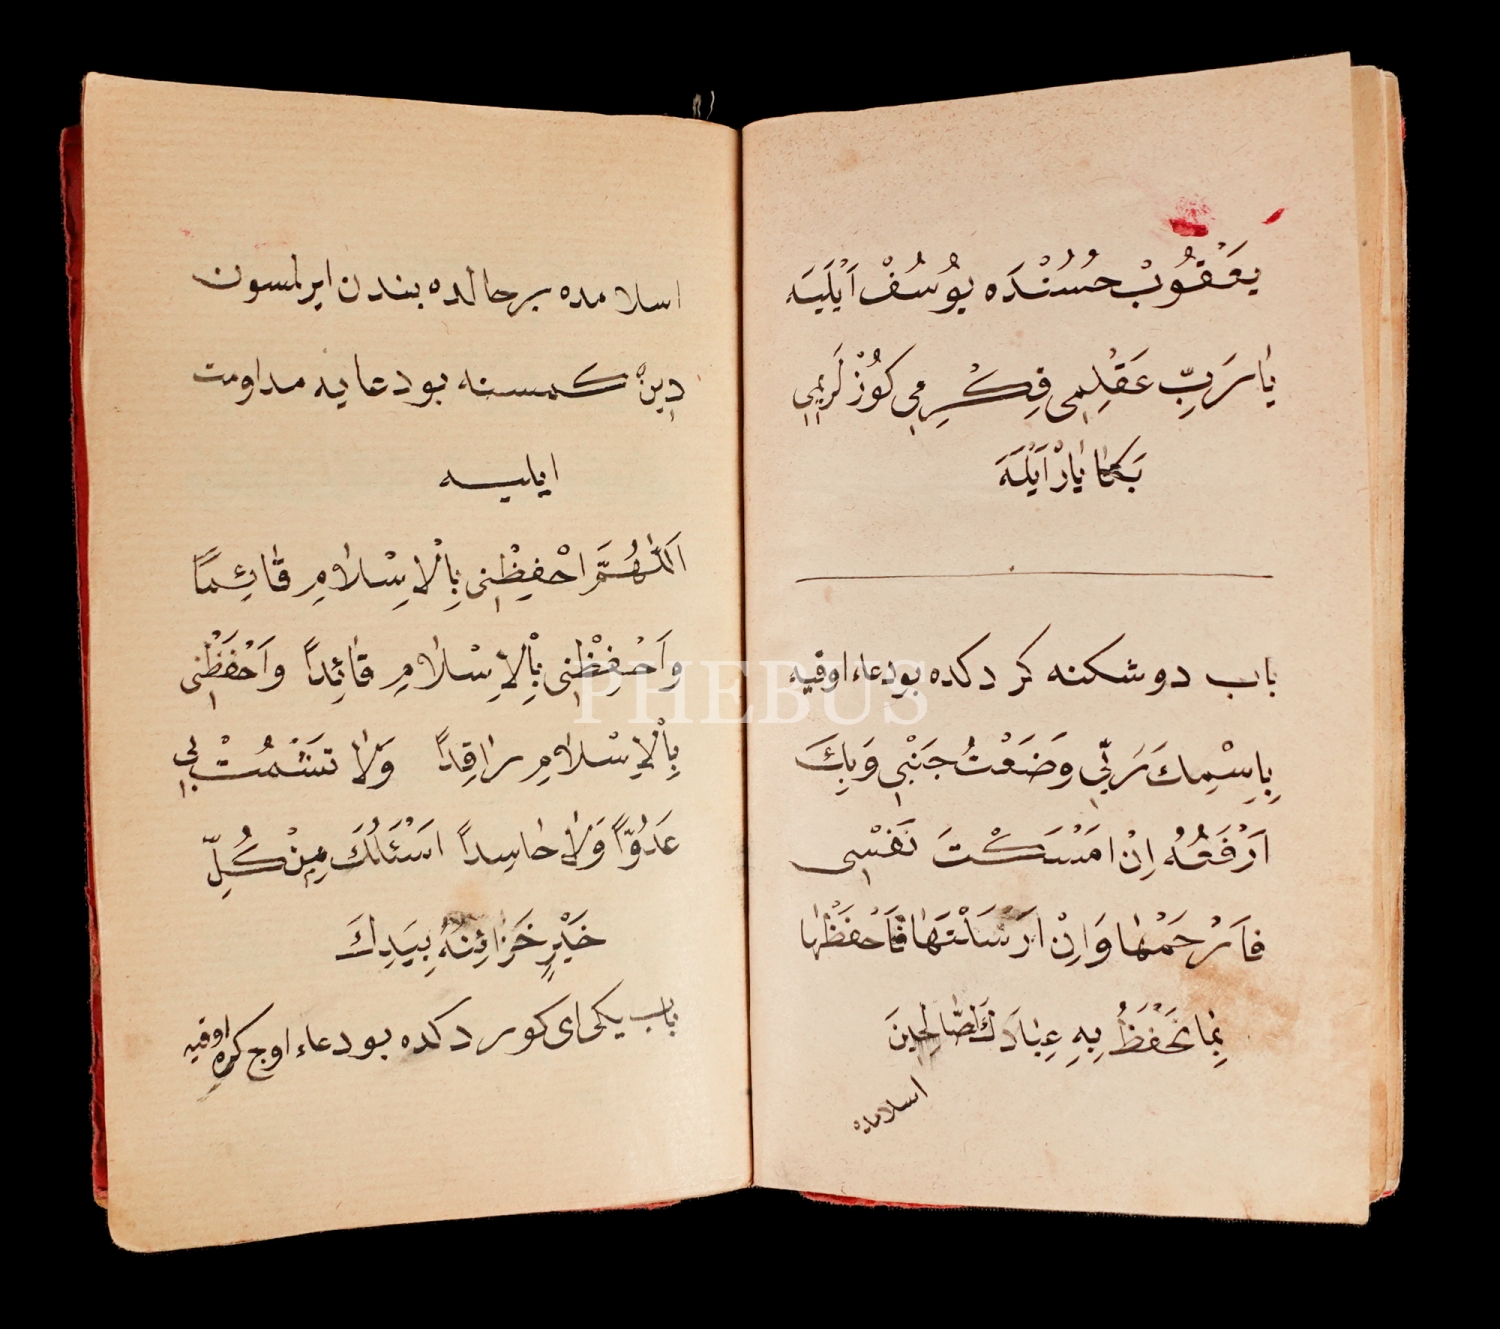 يَعْقُوبْ حُسُنْدَه يُوسُفْ اَيْلَيَه
يَا رَبِّ عَقْلِمِى فِكْرِمِى كُوزْلَرِيمِى
بَكَا يَارْ اَيْلَهَ
باب دوشكنه كردكده بو دعاء اوقيه
بِاسْمِكَ رَبِّى وَضَعْتُ جَنْبِى وَبِكَ
اَرْفَعُهُ اِنْ اَمْسَكْتَ نَفْسِى
فَارْحَمْهَا وَاِنْ اَرْسَلْتَهَا فَاحْفَظْهَا
بِمَا تَحْفَظُ بِهِ عِبَادَكَ لصَّالِحِينَ
اسلامده
اسلامده برحالده بندن ايرلمسون
دين كمسنه بو دعايه مداومت
ايليه
اَللّٰهُمَّ احْفِظْنِى بِالْاِسْلَامِ قَائِمًا
وَاحْفِظْنِى بِالْاِسْلَامِ قَائِدًا وَاحْفَظْنِى
بِالْاِسْلَامِ رَاقِدًا وَلَا تشَْمُتْ بِى
عَدُوًّا وَلَا حَاسِدًا اَسْئَلُكَ مِنْ كُلِّ
خَيْرٍ خَزَائِنُهُ بِيَدِكَ
باب يكى اى كوردكده بو دعاء اوج كره اوقيه
PHEBUS